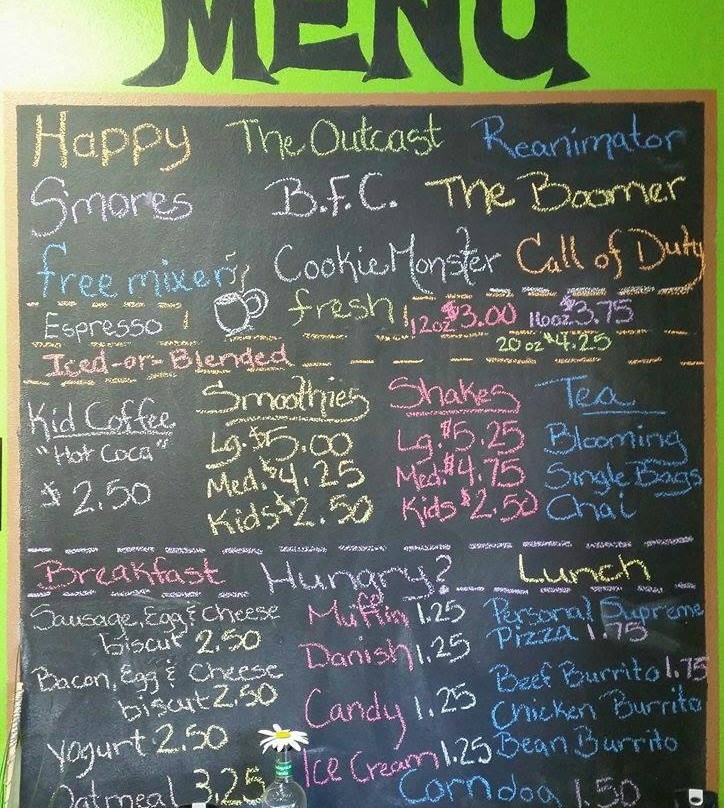 MENU
Happy The Outcast Reanimator
Smores B.F.C. The Boomer
free mixer Cookie Monster Call of Duty
Espresso fresh! 12oz $3.00 16oz $3.75
20oz $4.25
Iced-or-Blended
Kid Coffee
"Hot Coca"
$2.50
Smoothies
Lg. $5.00
Med. $4.25
Kids $2.50
Shakes
Lg. $5.25
Med. $4.75
Kids $2.50
Tea
Blooming
Single Bags
Chai
Breakfast Hungry? Lunch
Sausage, Egg & Cheese
biscut 2.50
Bacon, Egg & Cheese
biscut 2.50
yogurt 2.50
Oatmeal 3.25
Muffin 1.25
Danish 1.25
Candy 1.25
Ice Cream 1.25
Personal Supreme
Pizza 1.75
Beef Burrito 1.75
Chicken Burrito
Bean Burrito
Corndog 1.50